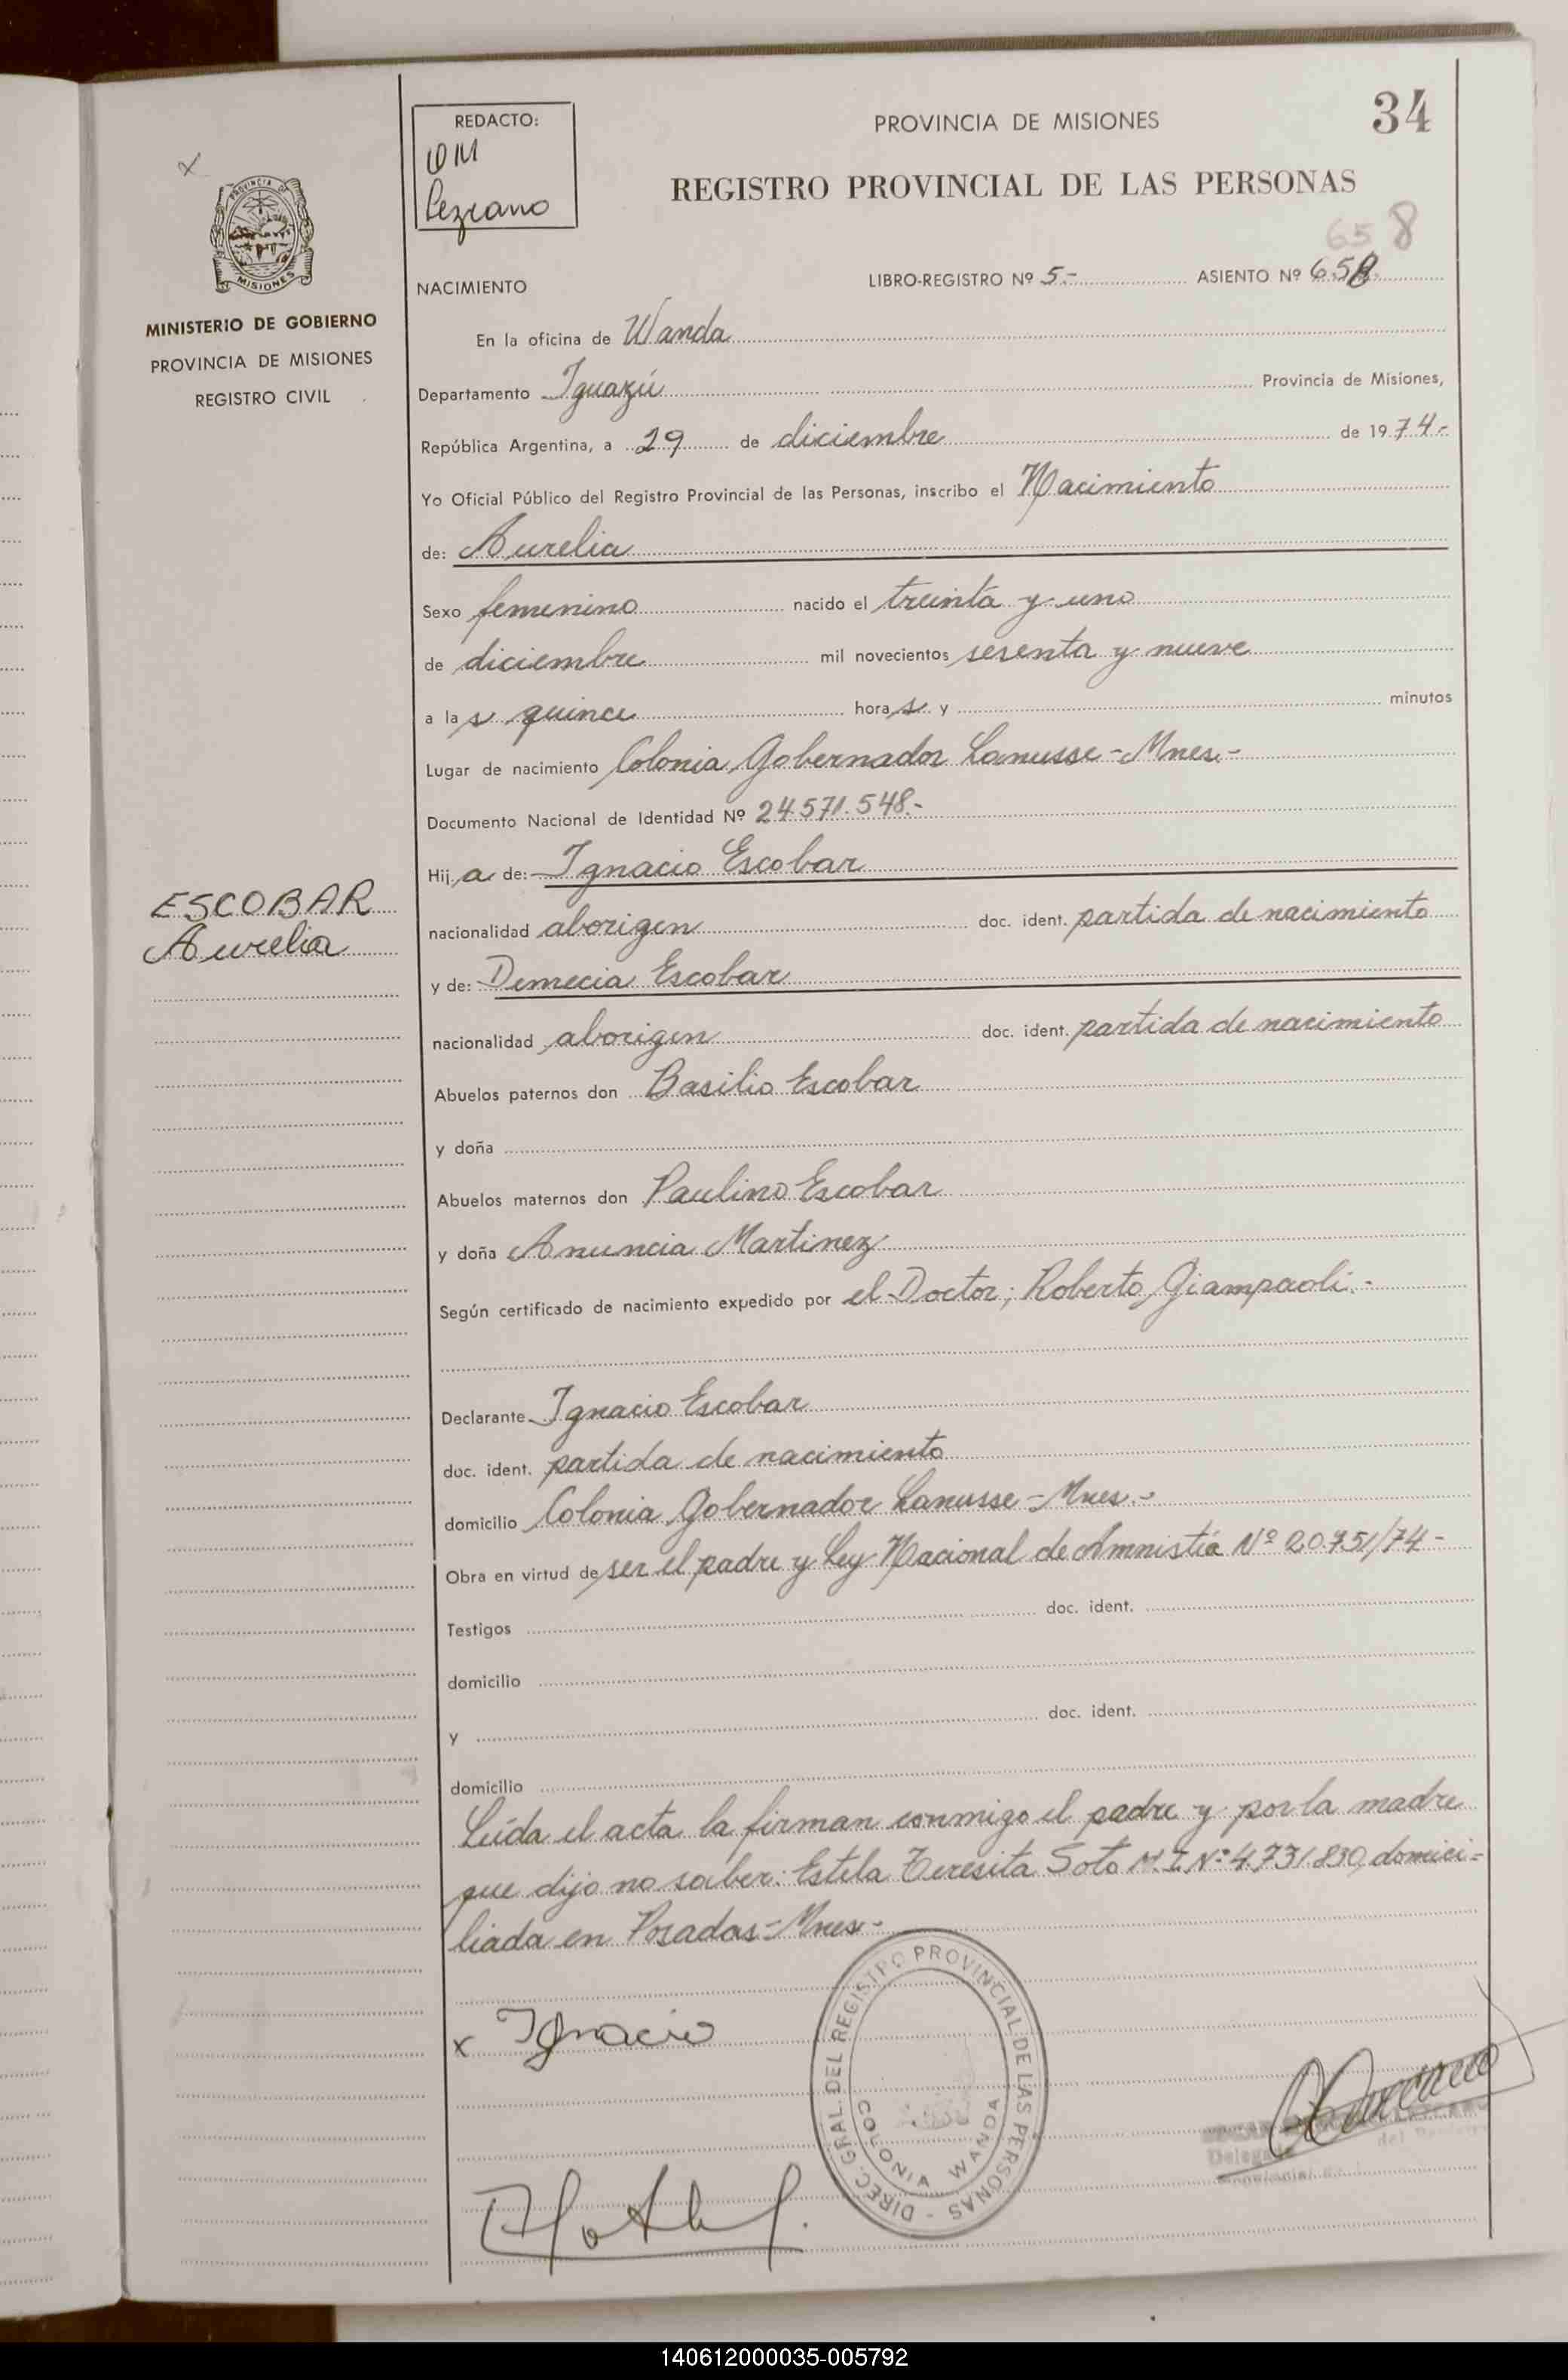 34
REDACTO:
OM
Lezcano
PROVINCIA DE MISIONES
REGISTRO PROVINCIAL DE LAS PERSONAS
PROVINCIA DE
MISIONES
MINISTERIO DE GOBIERNO
PROVINCIA DE MISIONES
REGISTRO CIVIL
658
NACIMIENTO LIBRO-REGISTRO Nº 5.- ASIENTO Nº 658
En la oficina de Wanda
Departamento Iguazú Provincia de Misiones,
República Argentina, a 29 de diciembre de 1974.-
Yo Oficial Público del Registro Provincial de las Personas, inscribo el Nacimiento
de: Aurelia
Sexo femenino nacido el treinta y uno
de diciembre mil novecientos sesenta y nueve
a las quince horas y minutos
Lugar de nacimiento Colonia Gobernador Lanusse-Mnes.-
Documento Nacional de Identidad Nº 24.571.548.-
Hija de: Ignacio Escobar
ESCOBAR
Aurelia
nacionalidad aborigen doc. ident. partida de nacimiento
y de: Demecia Escobar
nacionalidad aborigen doc. ident. partida de nacimiento
Abuelos paternos don Basilio Escobar
y doña
Abuelos maternos don Paulino Escobar
y doña Anuncia Martinez
Según certificado de nacimiento expedido por el Doctor; Roberto Giampaoli.-
Declarante Ignacio Escobar
doc. ident. partida de nacimiento
domicilio Colonia Gobernador Lanusse-Mnes.-
Obra en virtud de ser el padre y Ley Nacional de Amnistía Nº 20.751/74-
Testigos doc. ident.
domicilio
y doc. ident.
domicilio
Leída el acta la firman conmigo el padre y por la madre
que dijo no saber: Estela Teresita Soto M.I. Nº 4.731.830, domici=
liada en Posadas-Mnes-
x Ignacio
DIREC. GRAL. DEL REGISTRO PROVINCIAL DE LAS PERSONAS -
COLONIA WANDA
140612000035-005792